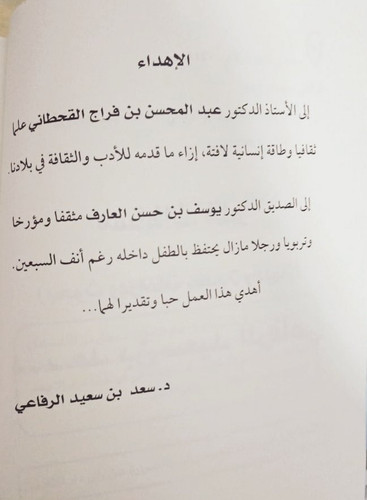 الإهداء
إلى الأستاذ الدكتور عبد المحسن بن فراج القحطاني علما
ثقافيا وطاقة إنسانية لافتة، إزاء ما قدمه للأدب والثقافة في بلادنا.
إلى الصديق الدكتور يوسف بن حسن العارف مثقفا ومؤرخا
وتربويا ورجلا مازال يحتفظ بالطفل داخله رغم أنف السبعين.
أهدي هذا العمل حبا وتقديرا لهما...
د. سعد بن سعيد الرفاعي